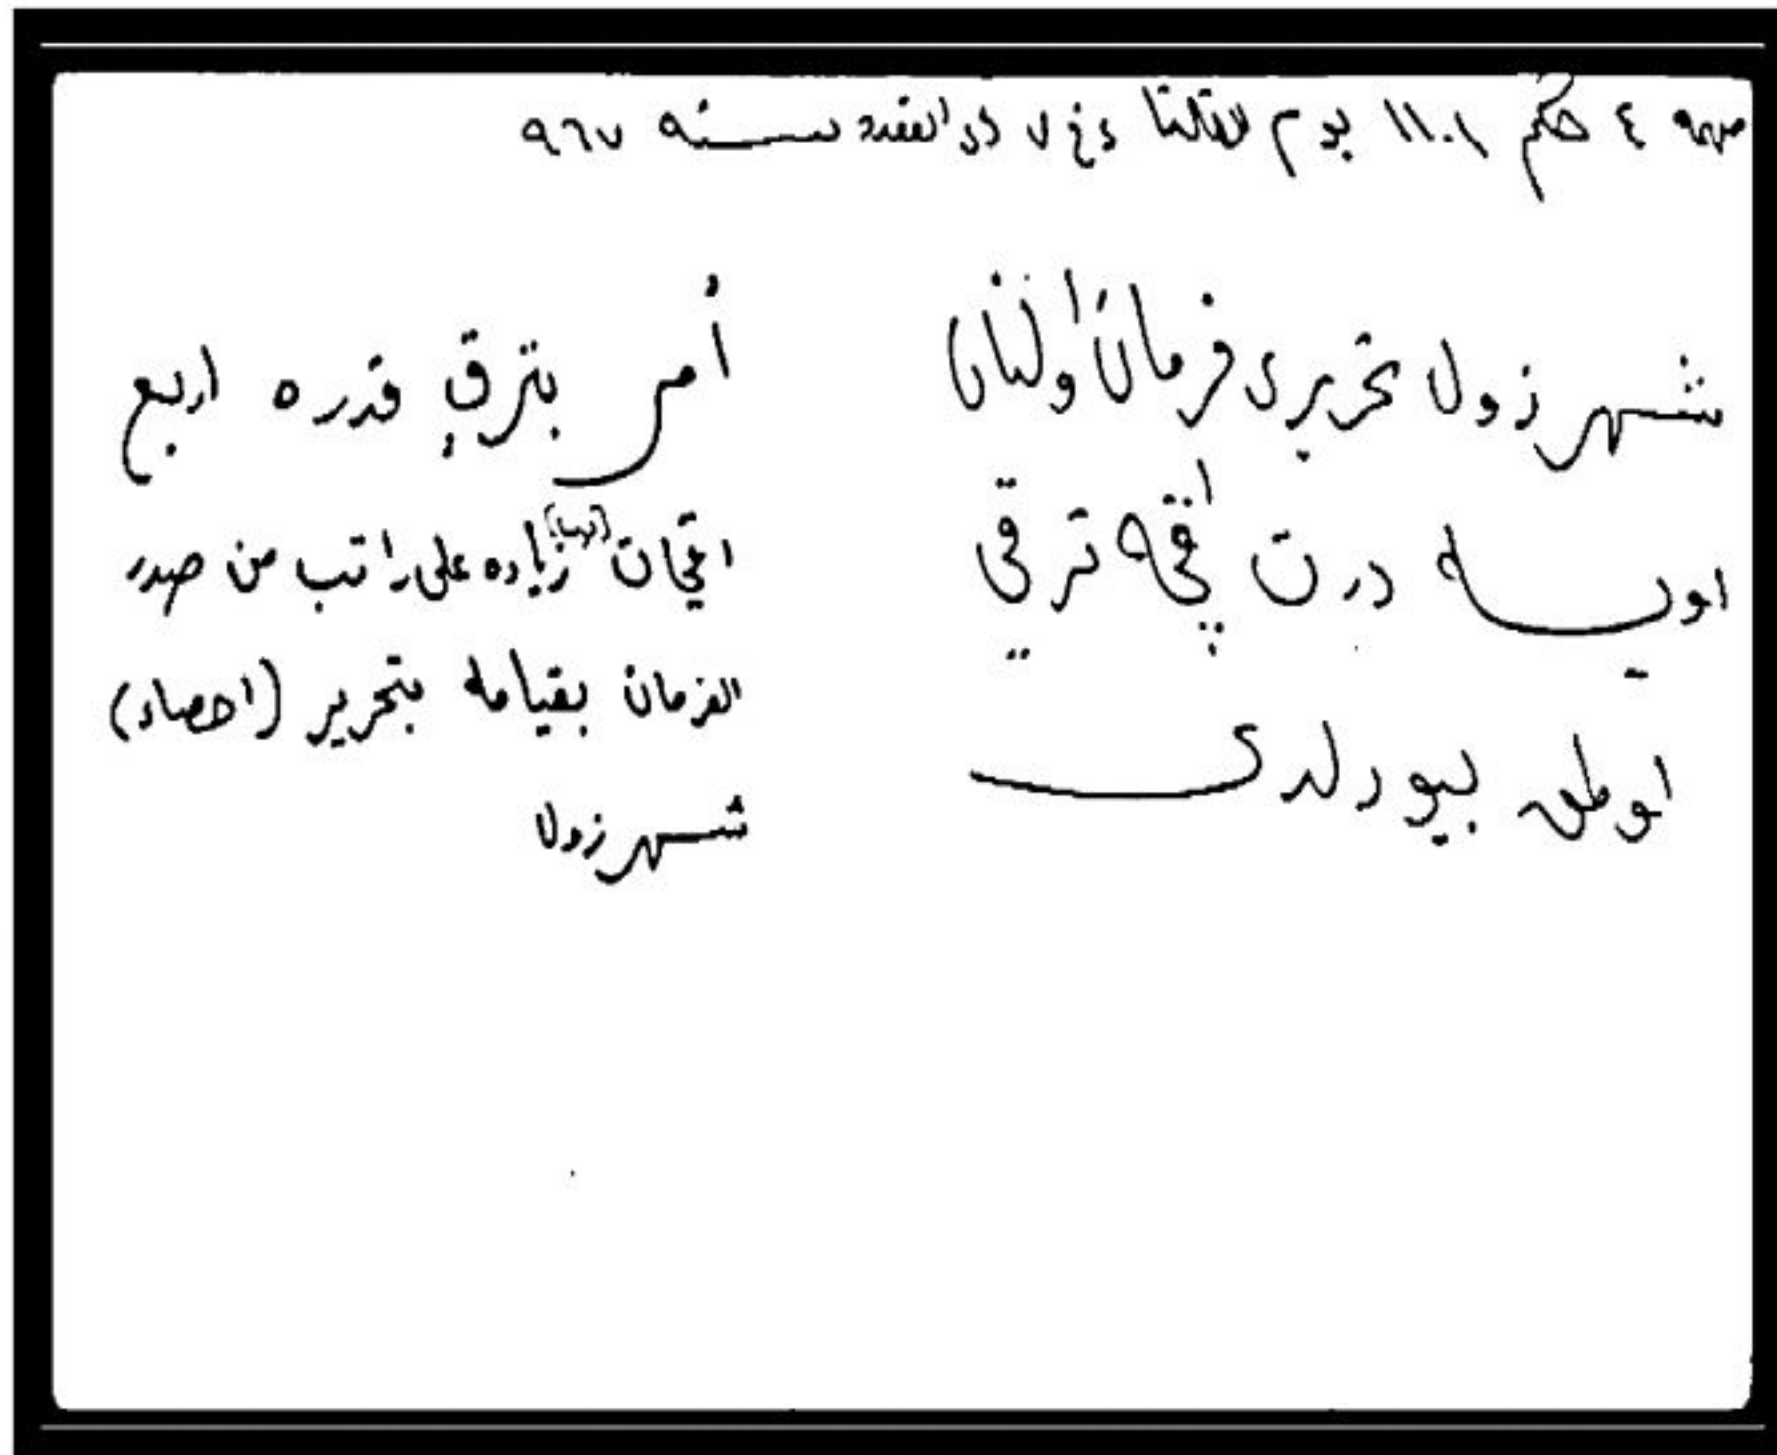 مهمه ٤ حكم ١١٠١ يوم الثلاثا في ٧ ذى القعده سنه ٩٦٧
شهرزول تحريرى فرمان اولنان
اويسه درت اقچه ترقى
اولمق بيورلدى
أمر بترقٍ قدره اربع
اقچات (يوميا) زياده على راتب من صدر
الفرمان بقيامه بتحرير (احصاء)
شهرزول